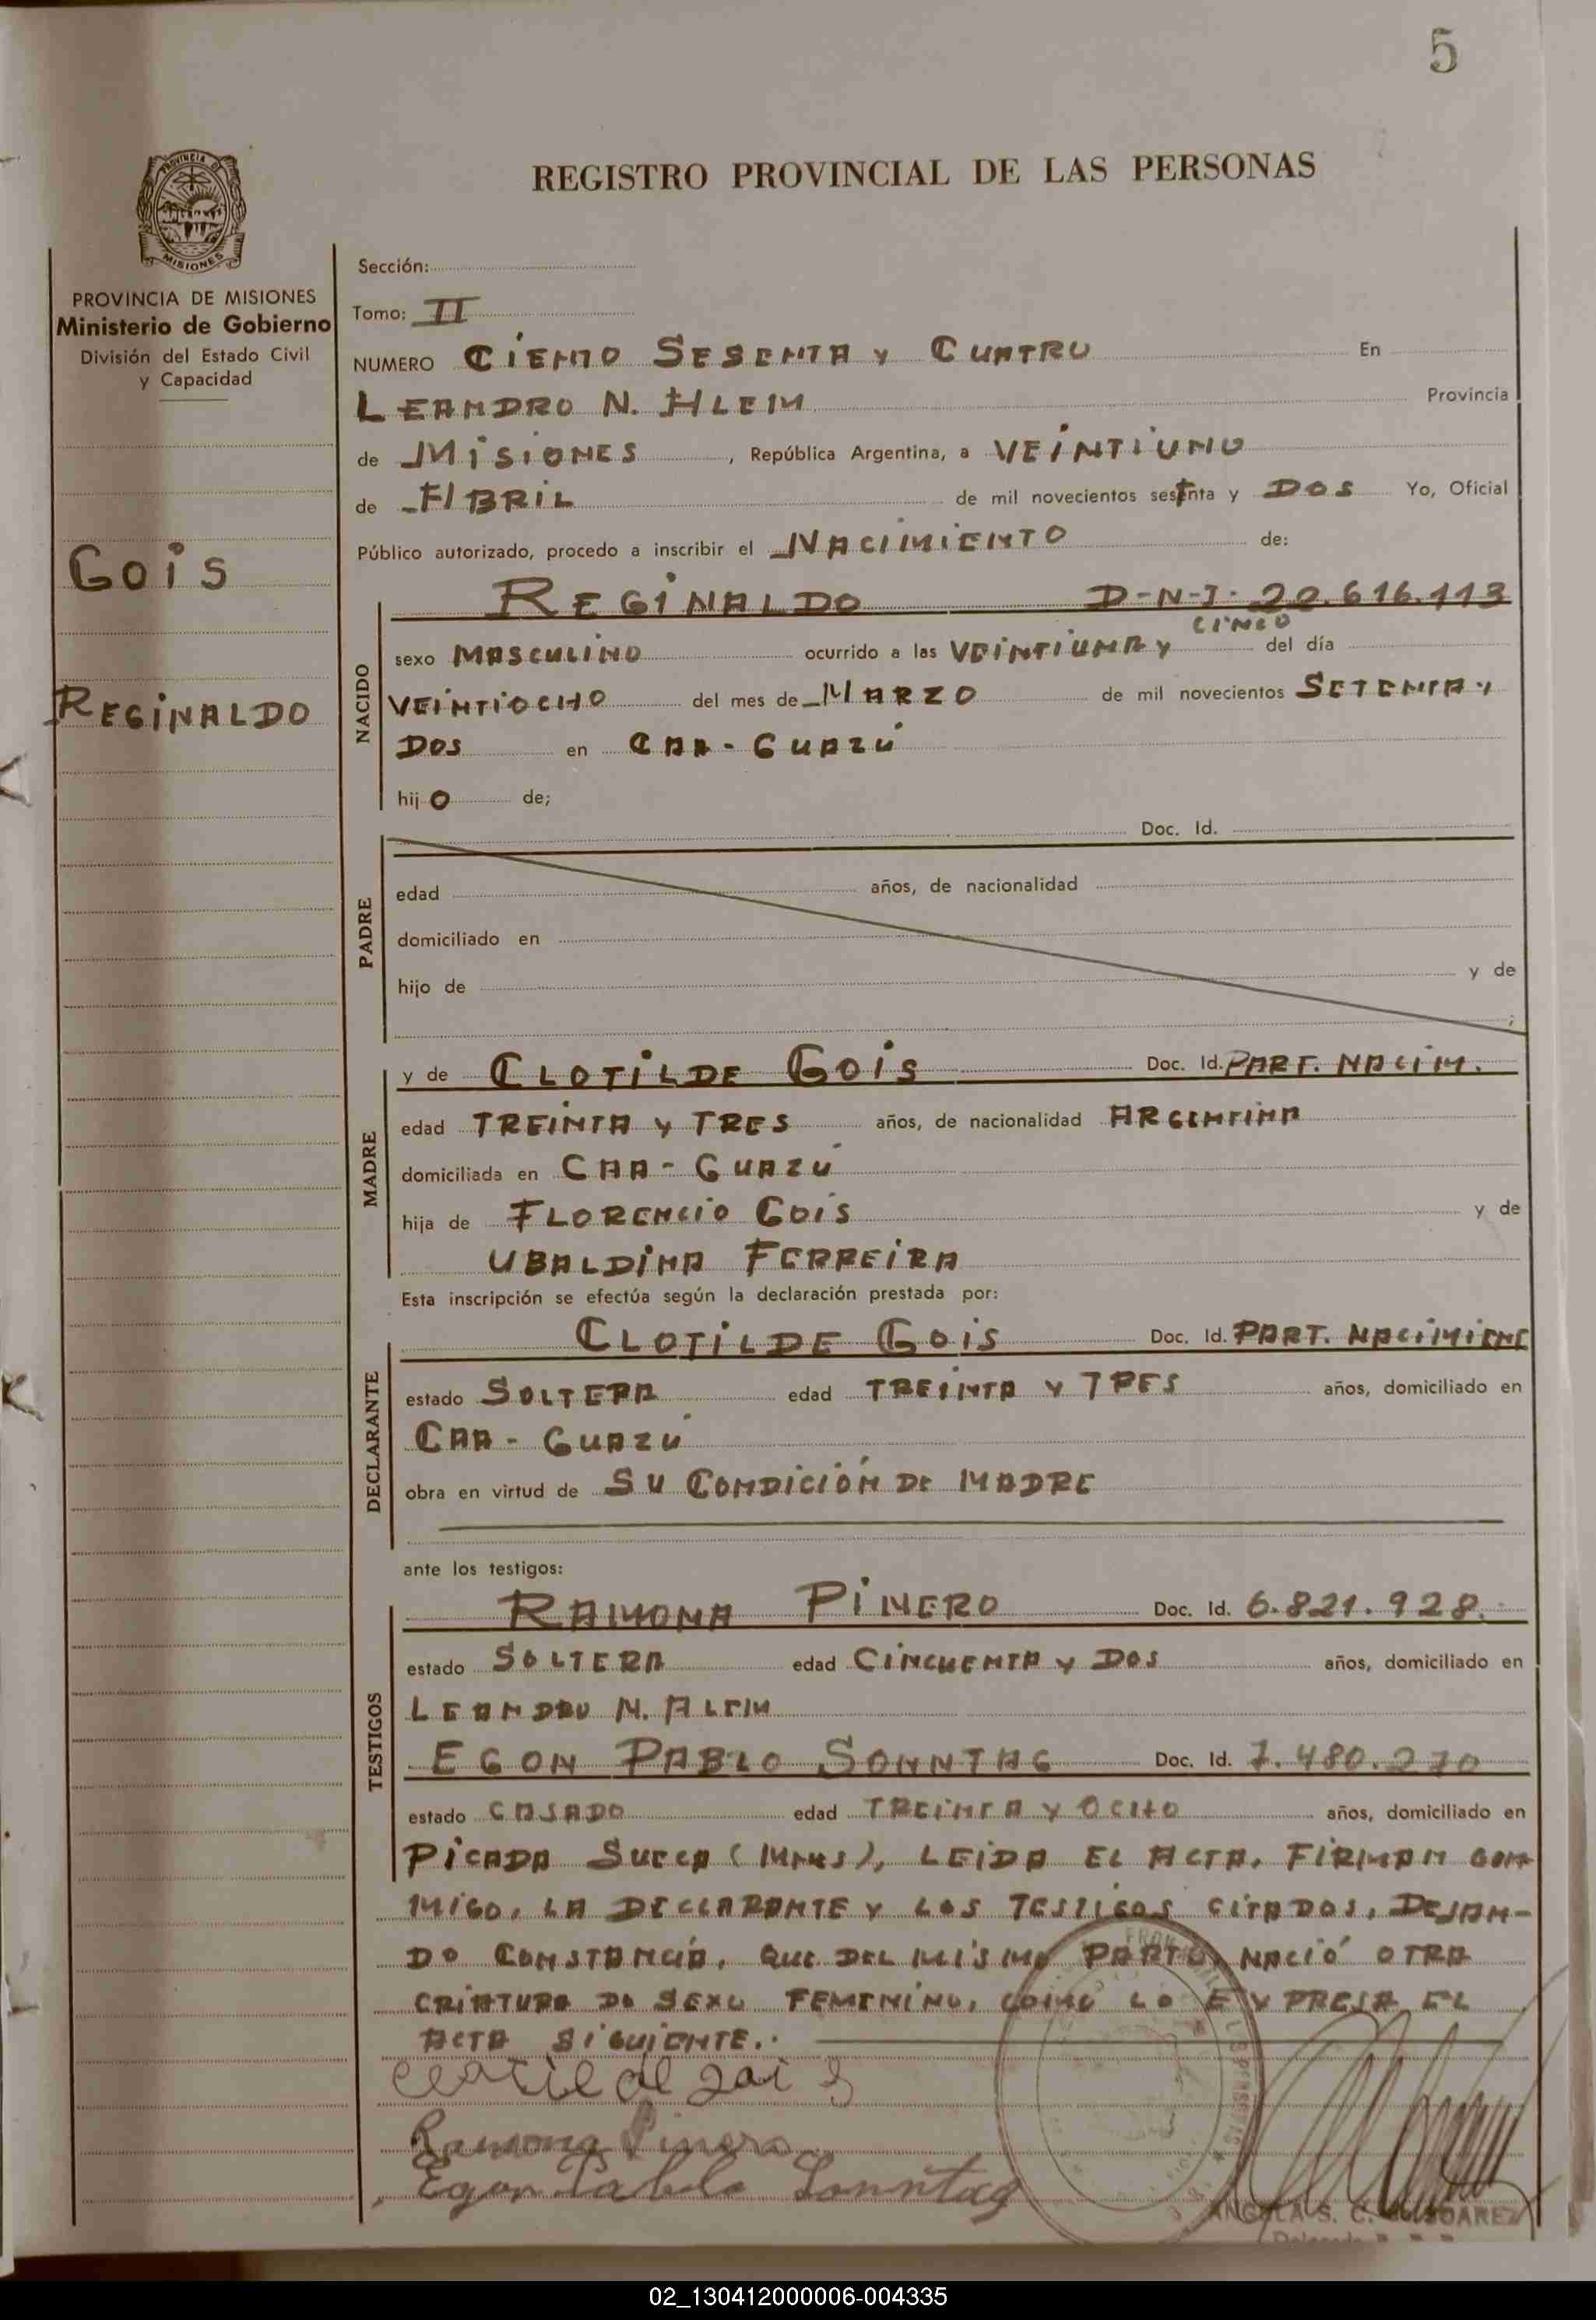 5
REGISTRO PROVINCIAL DE LAS PERSONAS
PROVINCIA DE MISIONES
MISIONES
PROVINCIA DE MISIONES
Ministerio de Gobierno
División del Estado Civil
y Capacidad
GOIS
REGINALDO
Sección:
Tomo: II
NUMERO CIENTO SESENTA Y CUATRO En
LEANDRO N. ALEM Provincia
de MISIONES, República Argentina, a VEINTIUNO
de ABRIL de mil novecientos setenta y DOS Yo, Oficial
Público autorizado, procedo a inscribir el NACIMIENTO de:
NACIDO
REGINALDO D-N-I- 22.616.113
sexo MASCULINO ocurrido a las VEINTIUNA Y CINCO del día
VEINTIOCHO del mes de MARZO de mil novecientos SETENTA Y
DOS en CAA-GUAZÚ
hijO de;
PADRE
Doc. Id.
edad años, de nacionalidad
domiciliado en
hijo de y de
;
MADRE
y de CLOTILDE GOIS Doc. Id. PART. NACIM.
edad TREINTA Y TRES años, de nacionalidad ARGENTINA
domiciliada en CAA-GUAZÚ
hija de FLORENCIO GOIS y de
UBALDINA FERREIRA
Esta inscripción se efectúa según la declaración prestada por:
DECLARANTE
CLOTILDE GOIS Doc. Id. PART. NACIMIENT
estado SOLTERA edad TREINTA Y TRES años, domiciliado en
CAA-GUAZÚ
obra en virtud de SU CONDICIÓN DE MADRE
ante los testigos:
TESTIGOS
RAMONA PINERO Doc. Id. 6.821.928.
estado SOLTERA edad CINCUENTA Y DOS años, domiciliado en
LEANDRO N. ALEM
EGON PABLO SONNTAG Doc. Id. 7.480.270
estado CASADO edad TREINTA Y OCHO años, domiciliado en
PICADA SUECA (MNES), LEIDA EL ACTA, FIRMAN CON-
MIGO, LA DECLARANTE Y LOS TESTIGOS CITADOS, DEJAN-
DO CONSTANCIA, QUE DEL MISMO PARTO, NACIÓ OTRA
CRIATURA DE SEXO FEMENINO, COMO LO EXPRESA EL
ACTA SIGUIENTE.
Clotilde gois
Ramona Pinero
Egon Pablo Sonntag
ANGELA S. C. SOAREZ
02_130412000006-004335